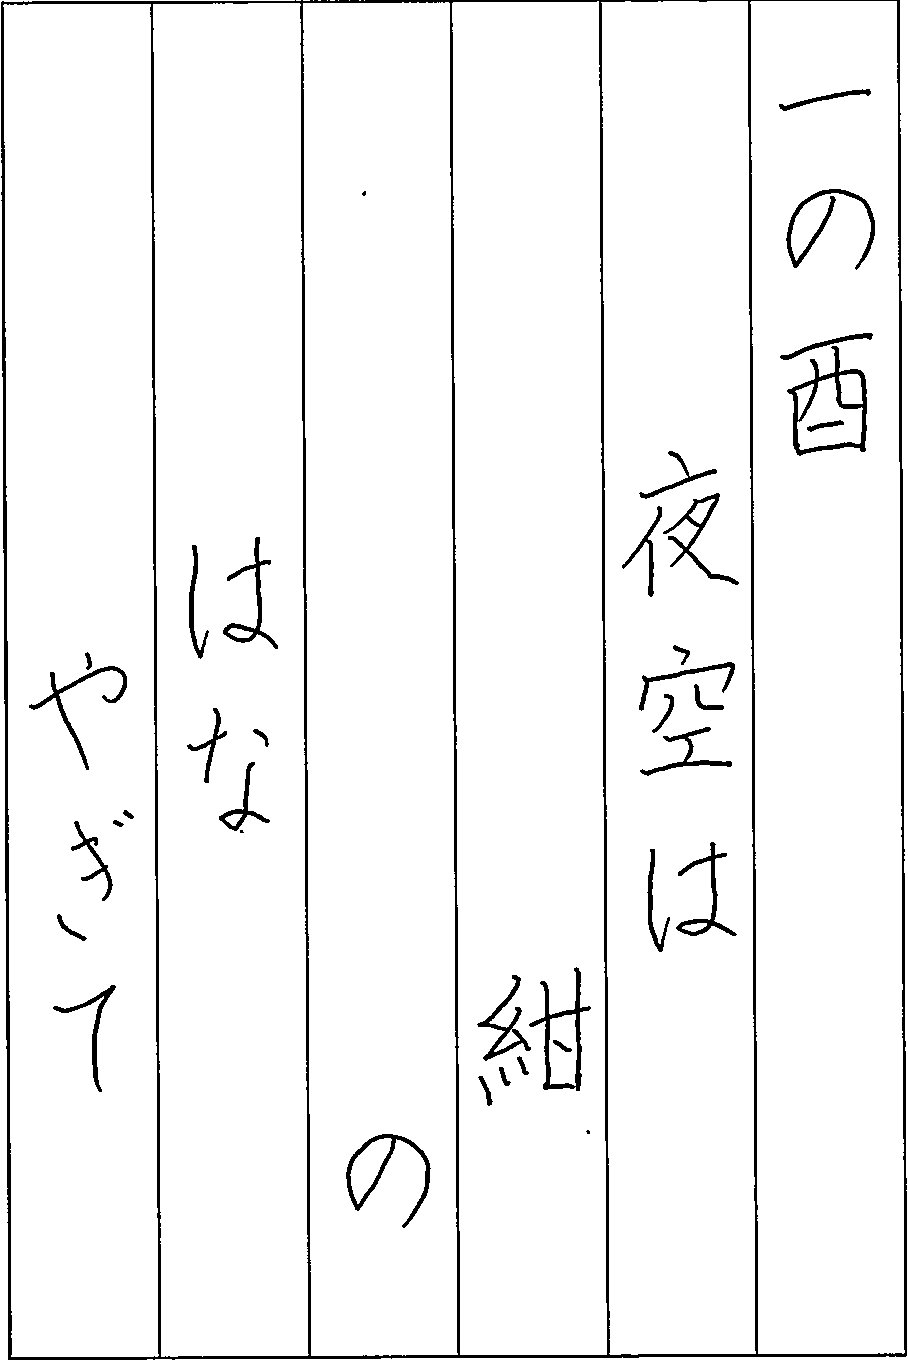 一の酉
夜空は
紺
の
はな
やぎて